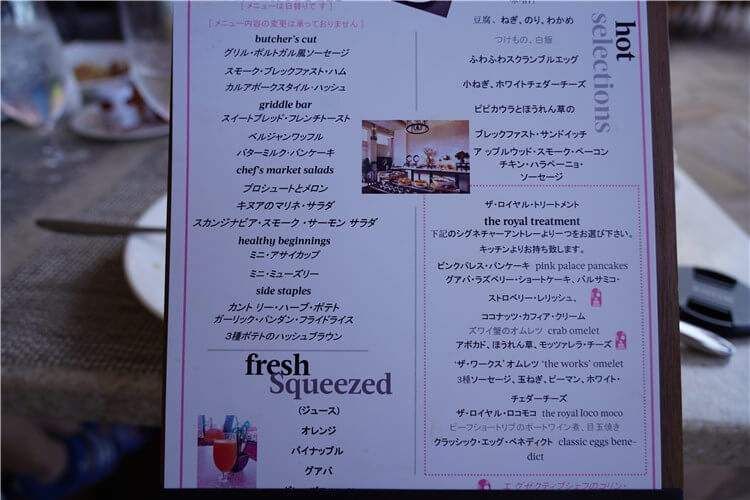 [ メニューは日替りです ]
[ メニュー内容の変更は承っておりません ]
butcher's cut
グリル・ポルトガル風ソーセージ
スモーク・ブレックファスト・ハム
カルアポークスタイル・ハッシュ
griddle bar
スイートブレッド・フレンチトースト
ベルジャンワッフル
バターミルク・パンケーキ
chef's market salads
プロシュートとメロン
キヌアのマリネ・サラダ
スカンジナビア・スモーク・サーモン サラダ
healthy beginnings
ミニ・アサイカップ
ミニ・ミューズリー
side staples
カント リー・ハーブ・ポテト
ガーリック・パンダン・フライドライス
3種ポテトのハッシュブラウン
fresh
Squeezed
(ジュース)
オレンジ
パイナップル
グアバ
hot
selections
豆腐、ねぎ、のり、わかめ
つけもの、白飯
ふわふわスクランブルエッグ
小ねぎ、ホワイトチェダーチーズ
ピピカウラとほうれん草の
ブレックファスト・サンドイッチ
アップルウッド・スモーク・ベーコン
チキン・ハラペーニョ・
ソーセージ
ザ・ロイヤル・トリートメント
the royal treatment
下記のシグネチャーアントレーより一つをお選び下さい。
キッチンよりお持ち致します。
ピンクパレス・パンケーキ pink palace pancakes
グアバ・ラズベリー・ショートケーキ、バルサミコ・
ストロベリー・レリッシュ、
ココナッツ・カフィア・クリーム
ズワイ蟹のオムレツ crab omelet
アボカド、ほうれん草、モッツァレラ・チーズ
'ザ・ワークス'オムレツ 'the works' omelet
3種ソーセージ、玉ねぎ、ピーマン、ホワイト・
チェダーチーズ
ザ・ロイヤル・ロコモコ the royal loco moco
ビーフショートリブのポートワイン煮、目玉焼き
クラッシック・エッグ・ベネディクト classic eggs bene-
dict
エグゼクティブシェフのコリン・